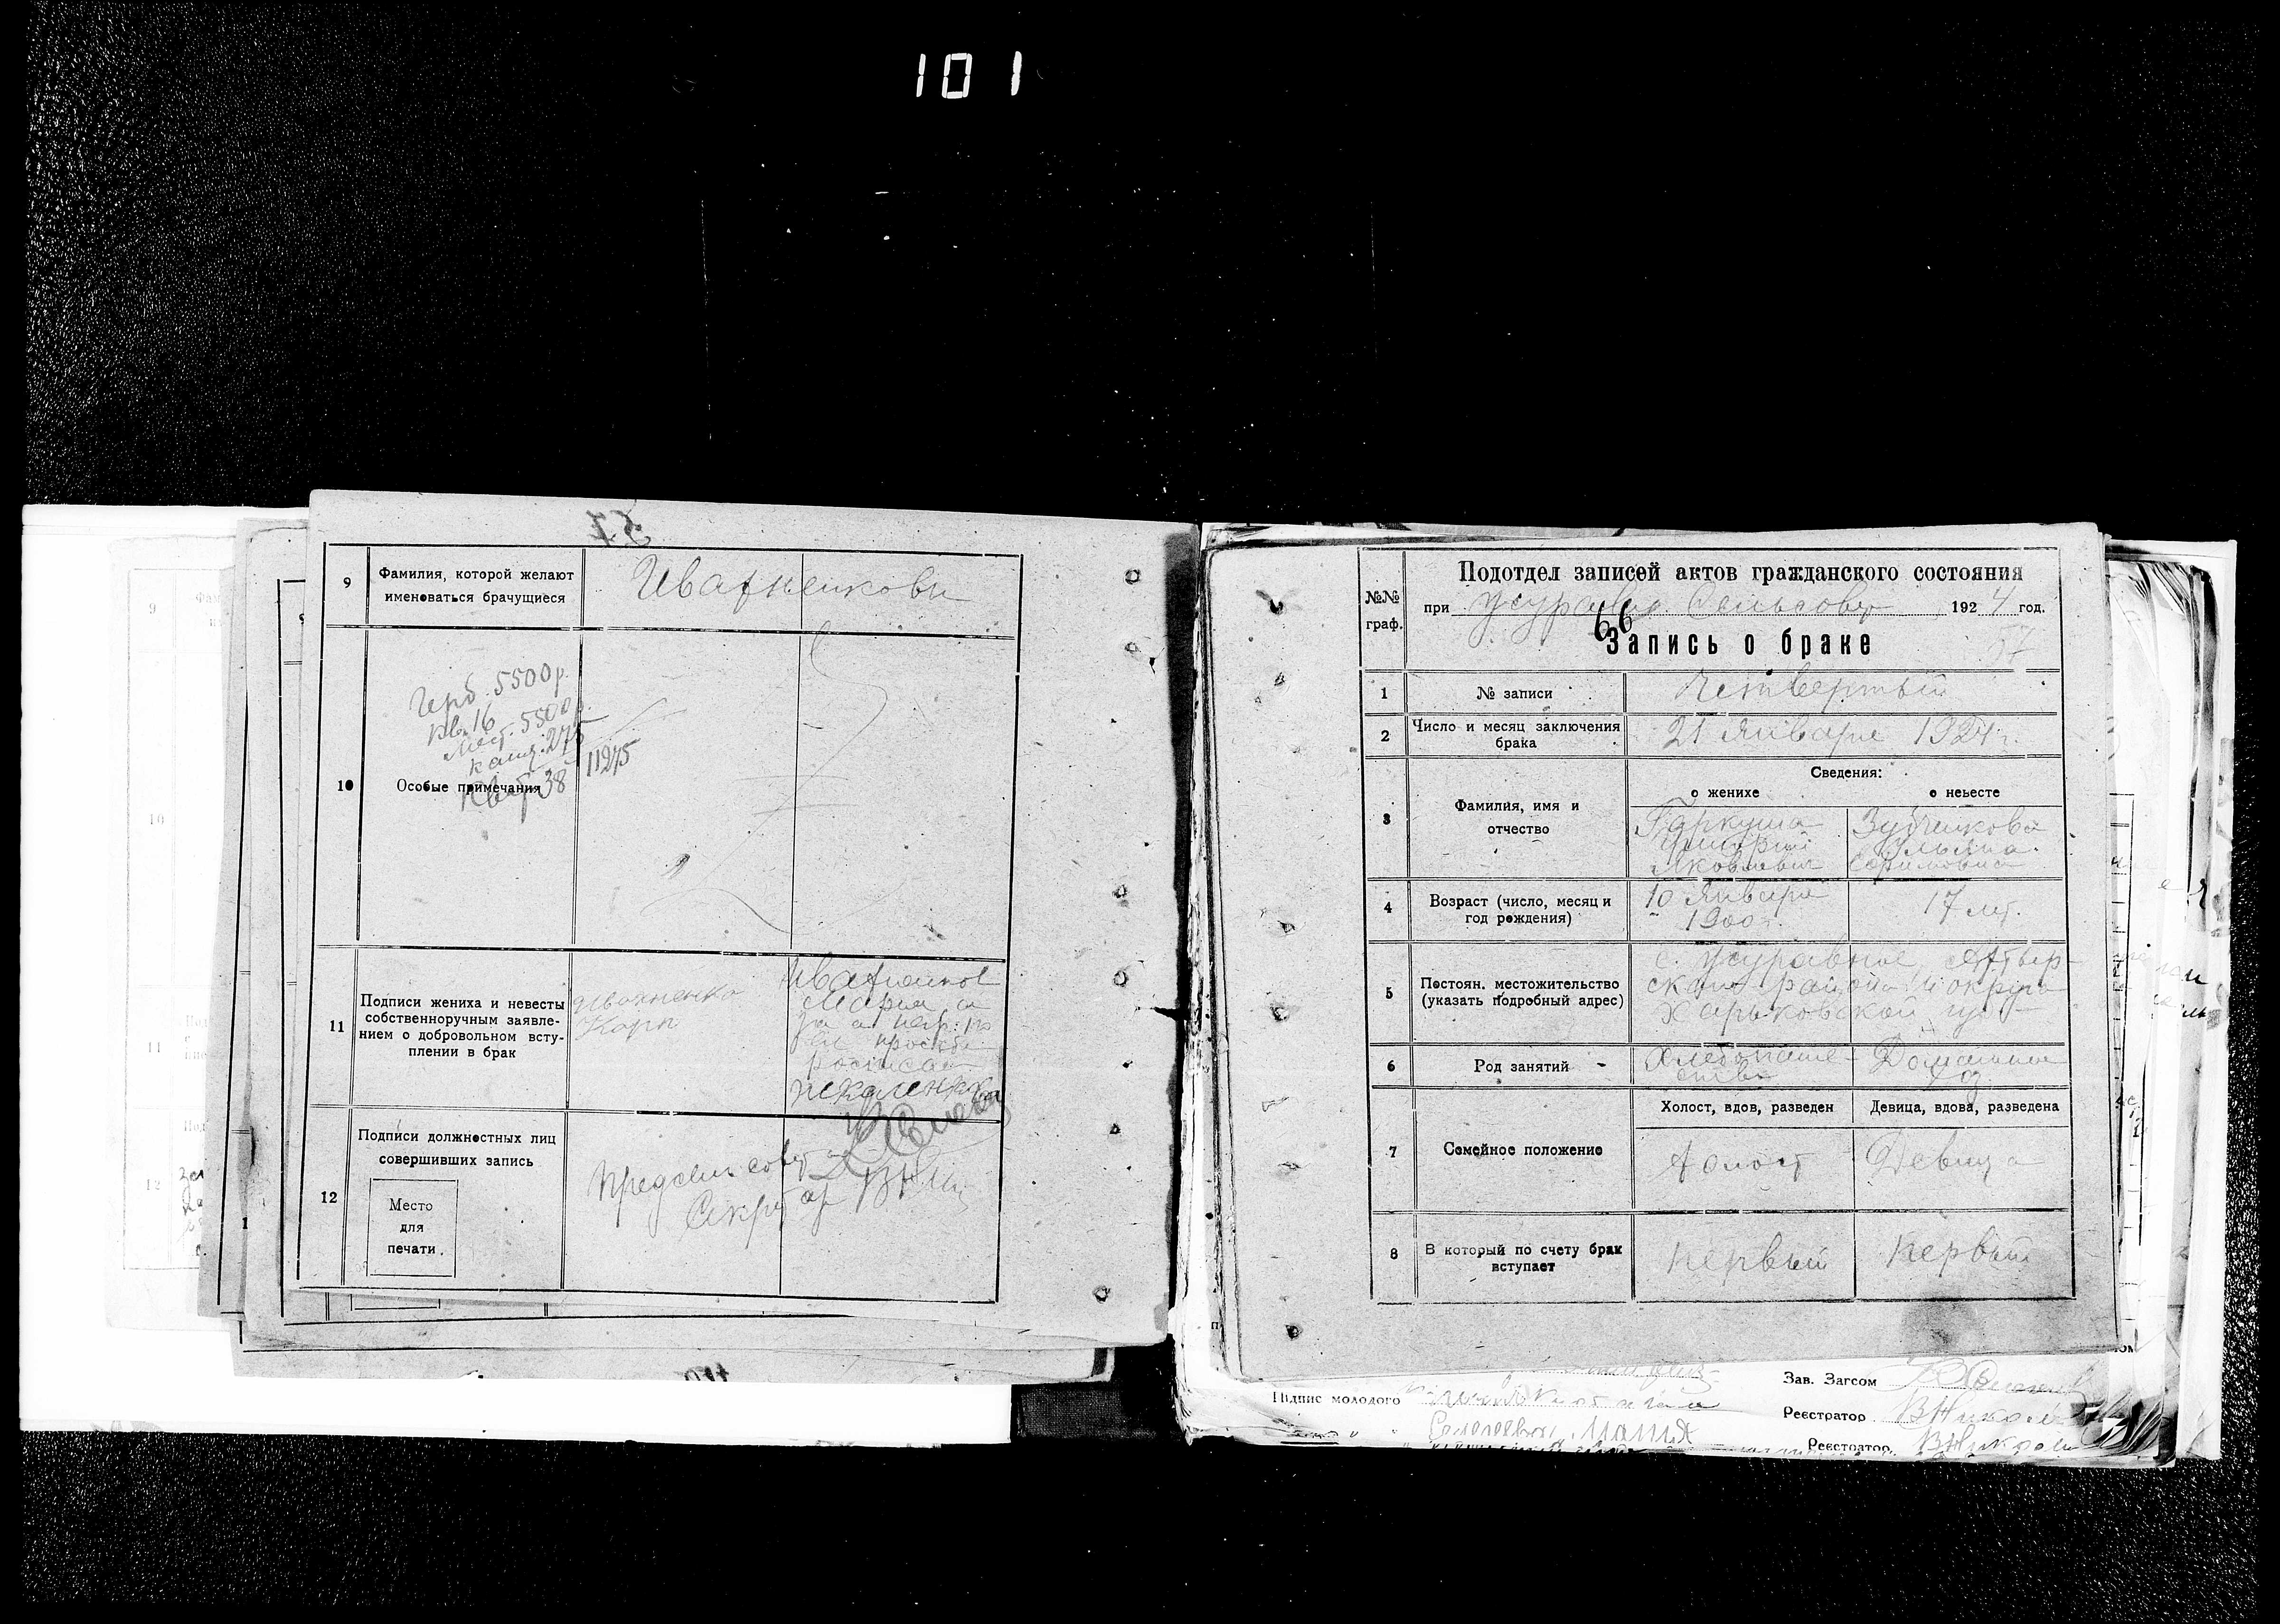 101
57
9
Фамилия, которой желают
именоваться брачущиеся
Ивахненковы
Герб. 5500 р.
Кв. 16
Мест. 5500 р.
канц. 275
11275
Квит 38
10
Особые примечания
11
Подписи жениха и невесты
собственноручным заявле-
нием о добровольном всту-
плении в брак
Ивахненко
Карп
Мария а
за а негр. по
росписал
12
Подписи должностных лиц
совершивших запись
Место
для
печати.
Предсельсовет
Секрет
№№
граф.
Подотдел записей актов гражданского состояния
при Сельсовет 1924 год.
66
Запись о браке
57
1
№ записи
Четвертый
2
Число и месяц заключения
брака
21 Января 1924 г.
Сведения:
3
Фамилия, имя и
отчество
о женихе
о невесте
Гаркуша
Григорий
Яковлевич
Зубченкова
Ульяна
4
Возраст (число, месяц и
год рождения)
10 Января
1900 г.
17 лет.
5
Постоян. местожительство
(указать подробный адрес)
с. Журавное
ского района округа
Харьковской губ
6
Род занятий
Хлебопаше-
ство
Домашнее
хоз
7
Семейное положение
Холост, вдов, разведен
Девица, вдова, разведена
Холост
Девица
8
В который по счету брак
вступает
первый
первый
Підпис молодого
Зав. Загсом
Реєстратор
Реєстратор